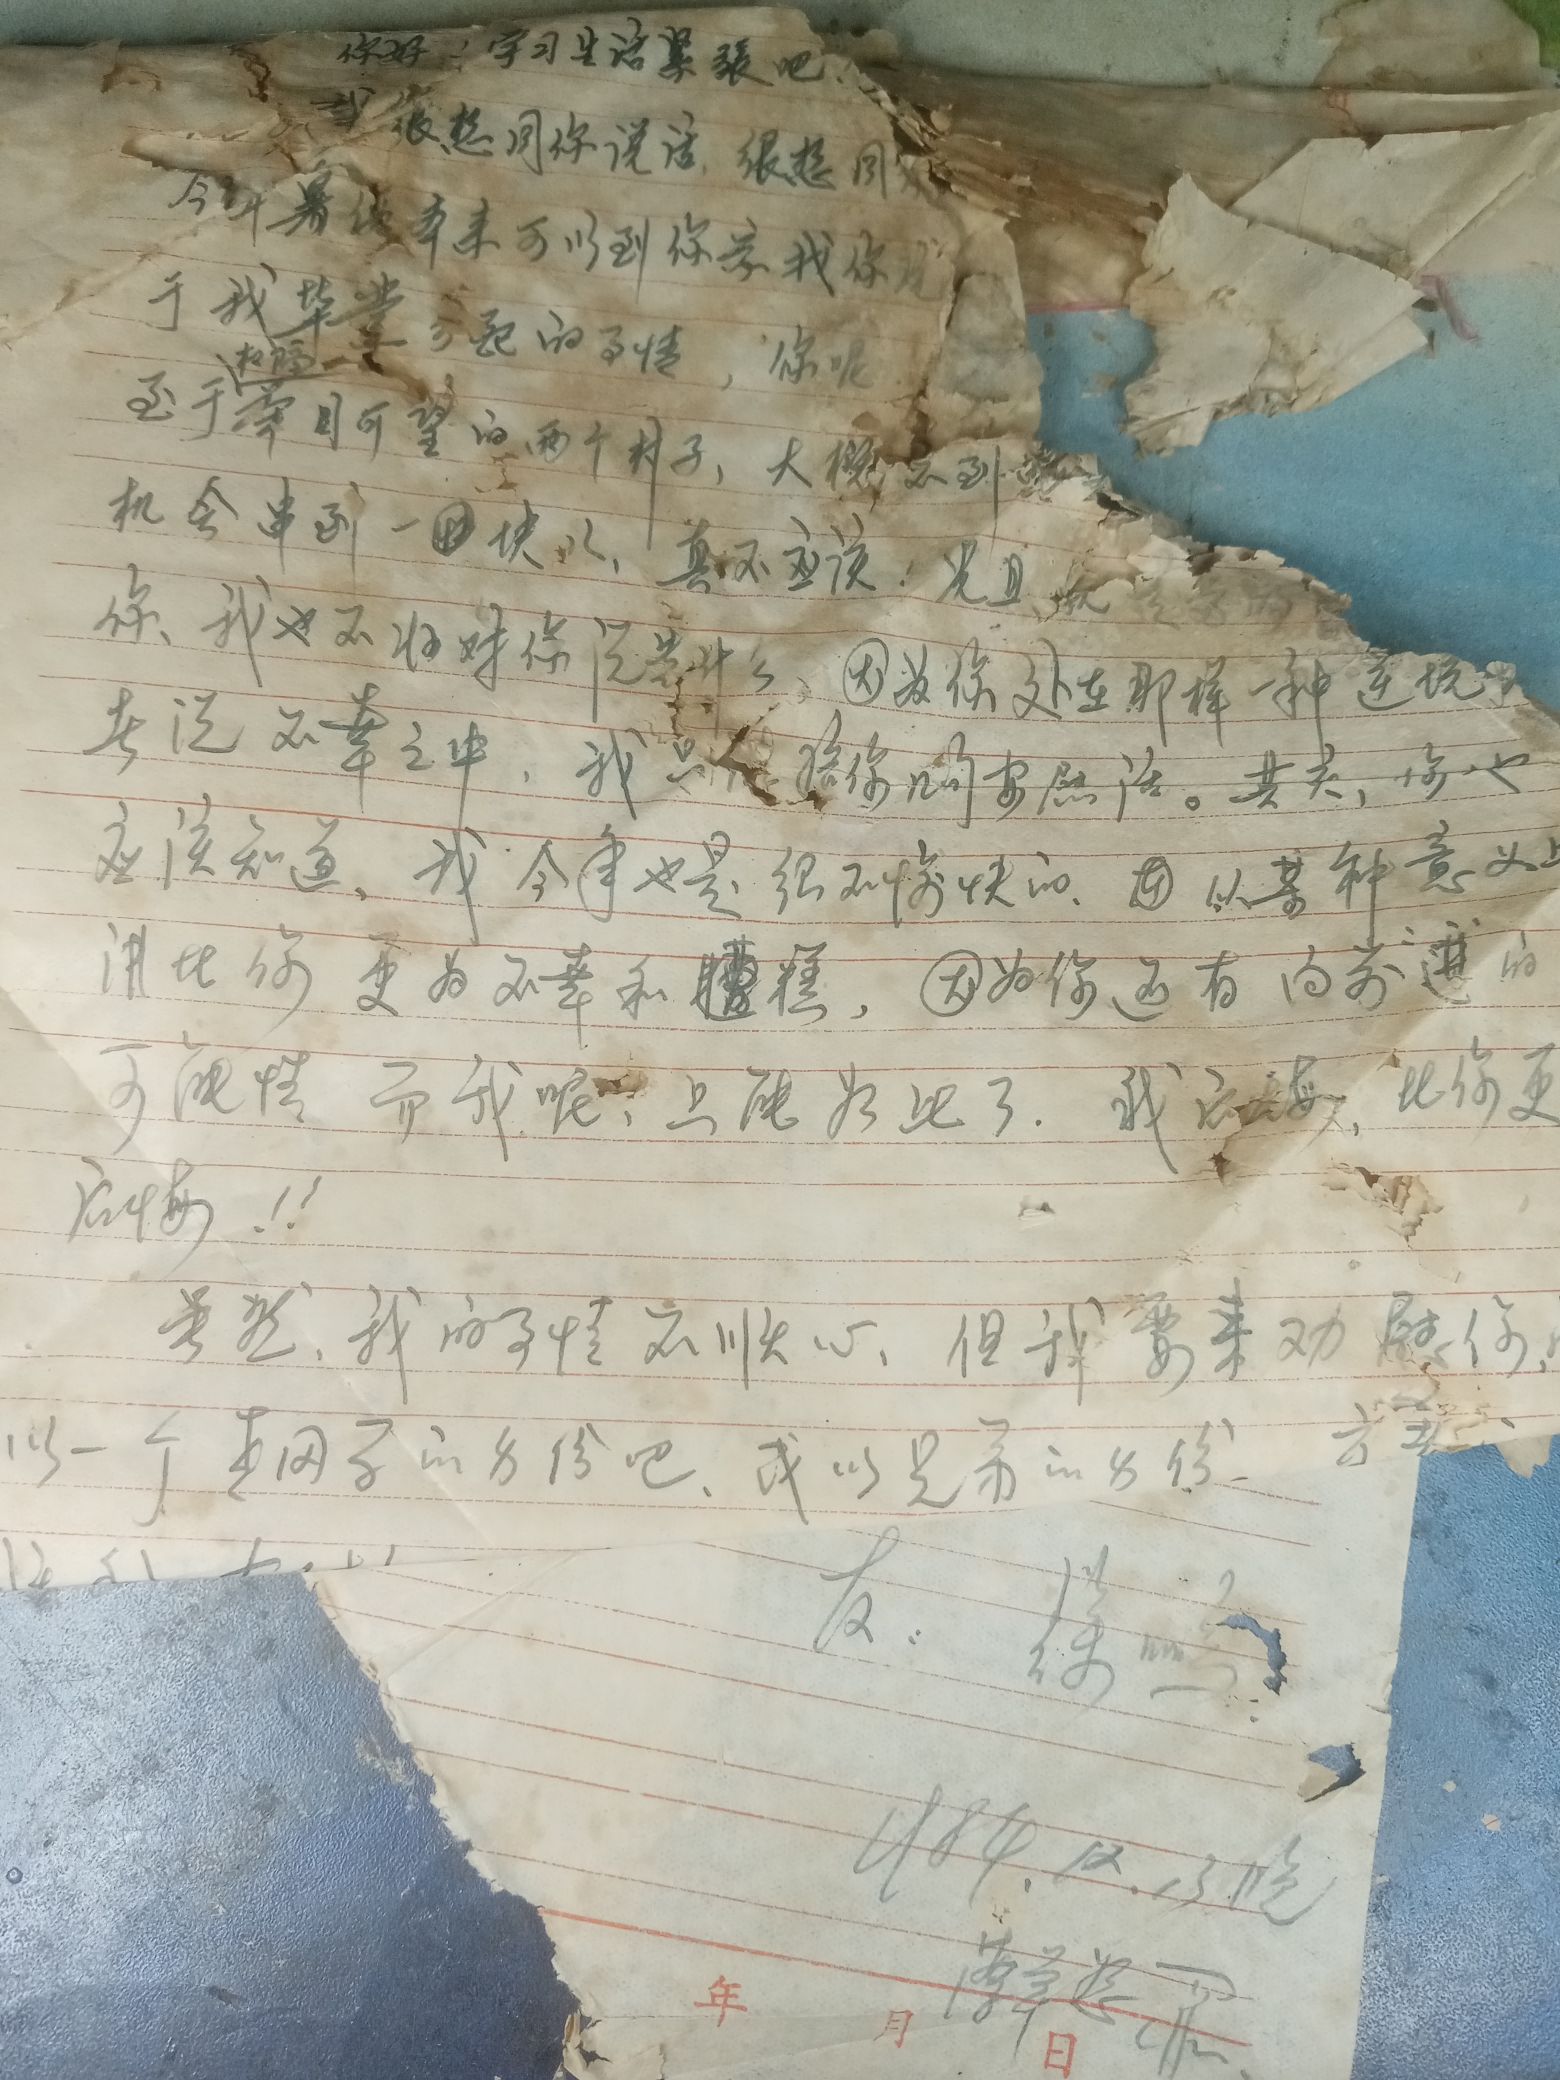 你好：学习生活紧张吧！
我很想同你说话，很想同
今年暑假本来可以到你家找你
于我毕业分配的事情，你呢
至于相隔举目可望的两个村子，大概不到
机会串到一块儿，真不应该！况且
你、我也不好对你说些什么，因为你处在那样一种逆境
者说不幸之中，我只 给你几句安慰话。其实，你也
应该知道，我今年也是很不愉快的，从某种意义上
讲比你更为不幸和糟糕，因为你还有向前进的
可能性 而我呢，只能如此了．我后悔，比你更
后悔！！
当然，我的事情不顺心，但我要来劝慰你，
以一个 的身份吧，或以兄弟的身份
友：
1984.12.13.晚
年 月 日